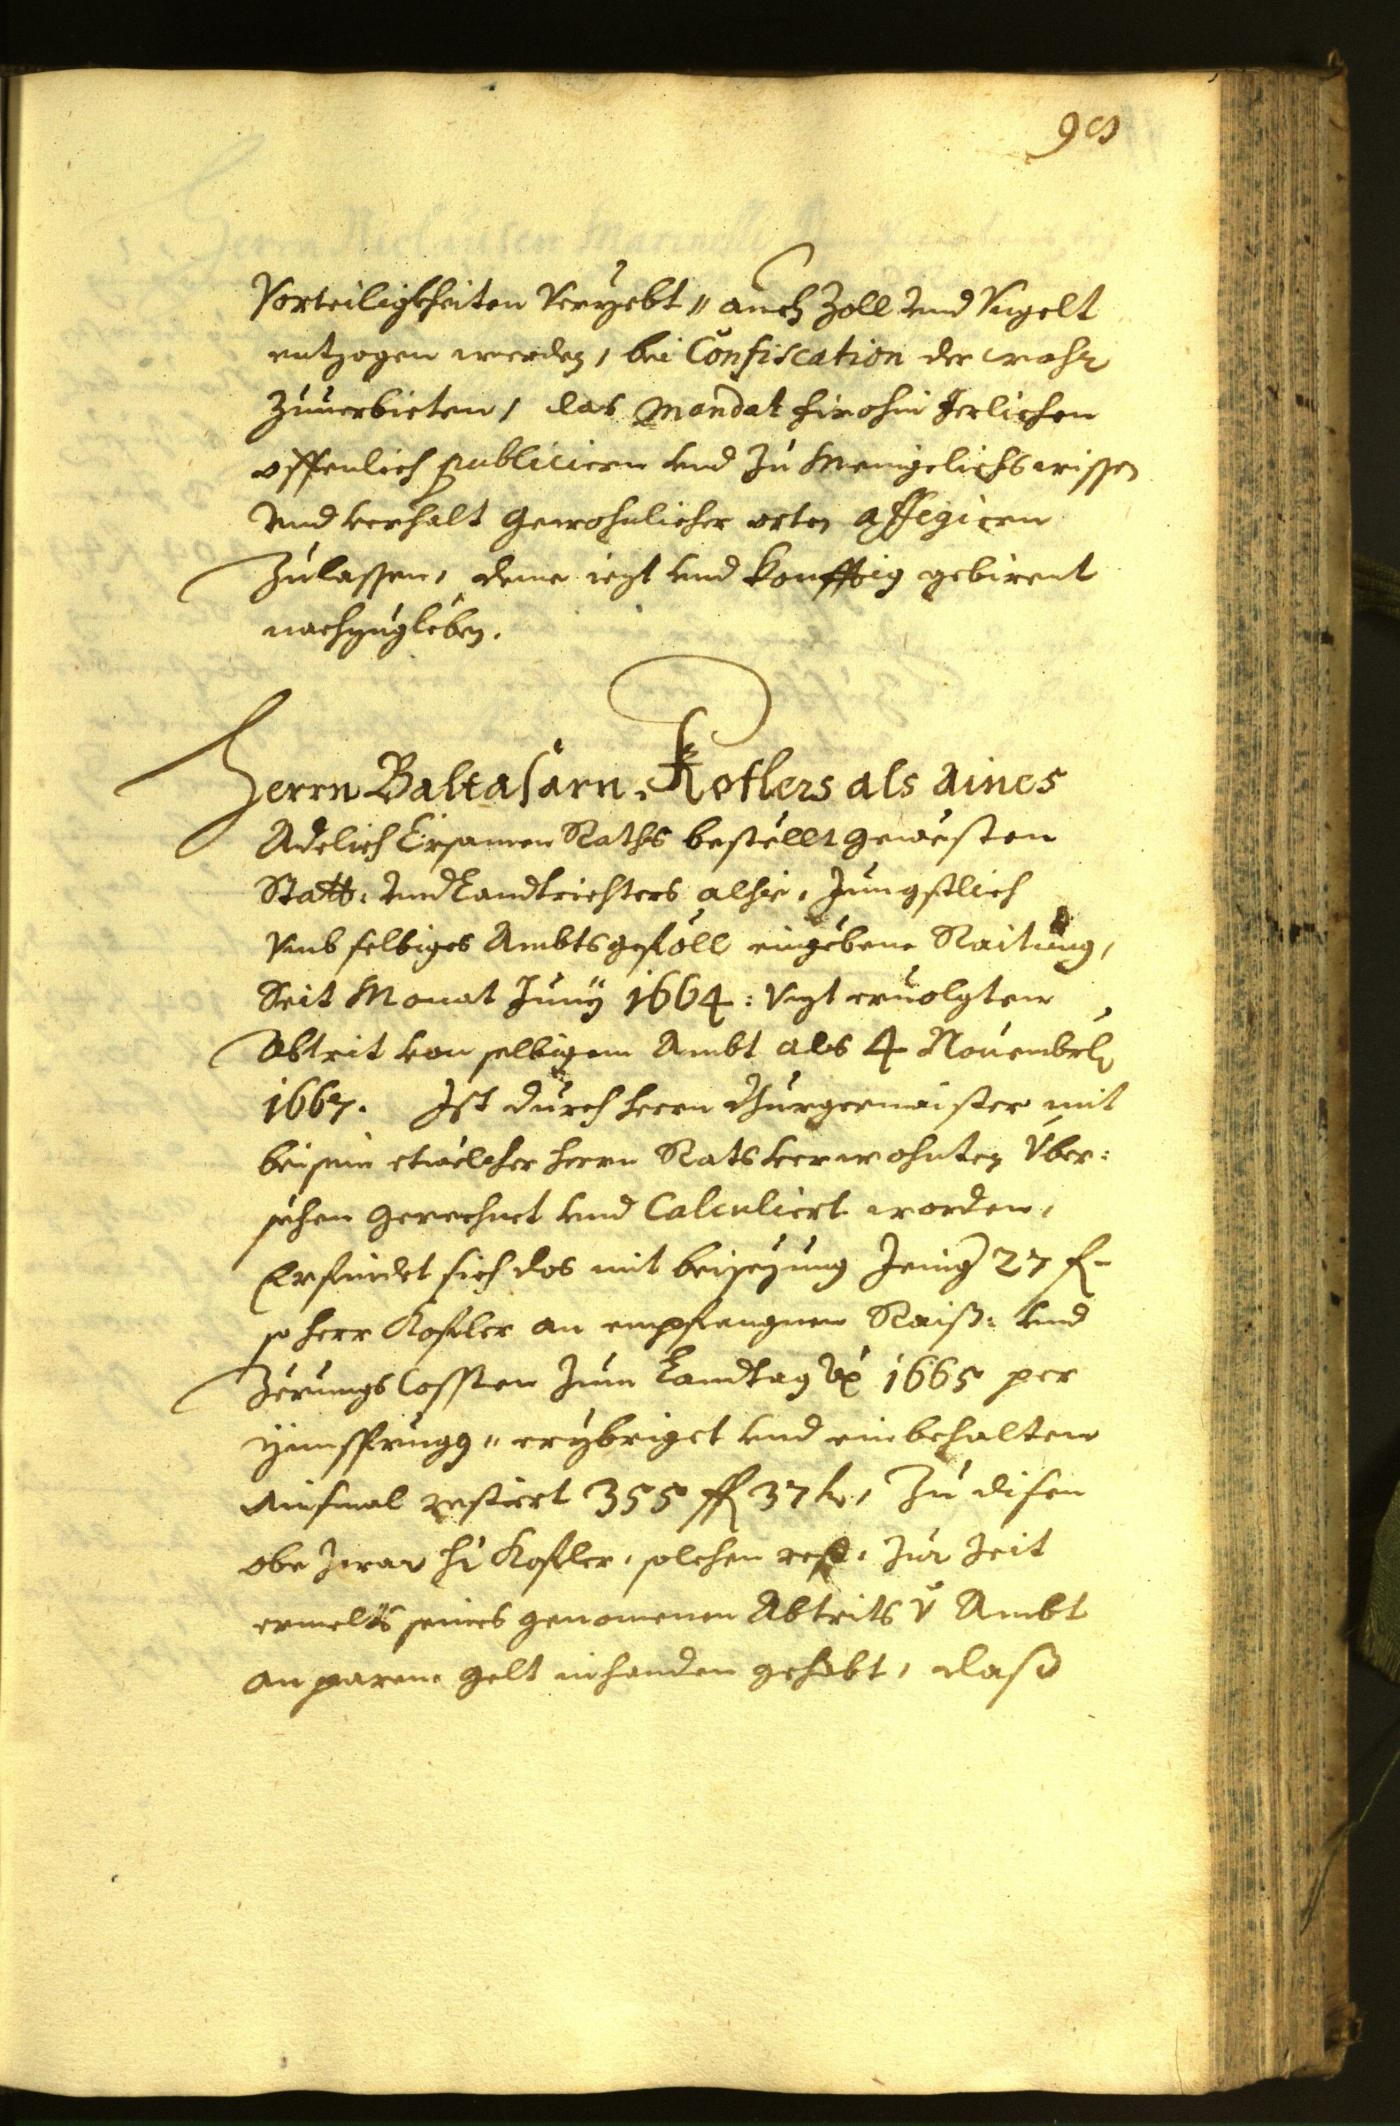 Vorteiligkheiten veryebt, auch Zoll und Vngelt
entzogen werden, bei Confiscation der wahr
zuuerbieten, das Mandat firohin Jerlichen
offenlich publiciern und zu Menigelichs wissen
und verhalt gewohnlicher orten affigiern
zulassen, deme iezt und konfftig gebirent
nachzugleben.
Herrn Baltasarn Koflers als aines
Adelich Ersamen Raths bestellt gewesten
Statt: und Landtrichters alhie, Jungstlich
vmb selbiges Ambtsgeföll eingebene Raitung,
Seit Monat Junÿ 1664: biß eruolgten
Abtrit von selbigem Ambt als 4 Nouembris
1667. Ist durch herrn Burgermaister mit
beisein etwelcher herrn Rats verwohnten Vber:
sehen gerechnet und Calculiert worden,
Erfindet sich das mit beisezung Jenig 27 f
so herr Kofler an empfangnen Raiß: und
Zerungs Cossten zum Landtag 1665 per
Yhnsprugg erybriget und einbehalten
Ainsmal restiert 355 f 37 kr, Zu disen
obe zwar Hr Kofler, solchen rest, zur Zeit
ermelts seines genomenen Abtrits v Ambt
an parem gelt inhanden gehabt, daß